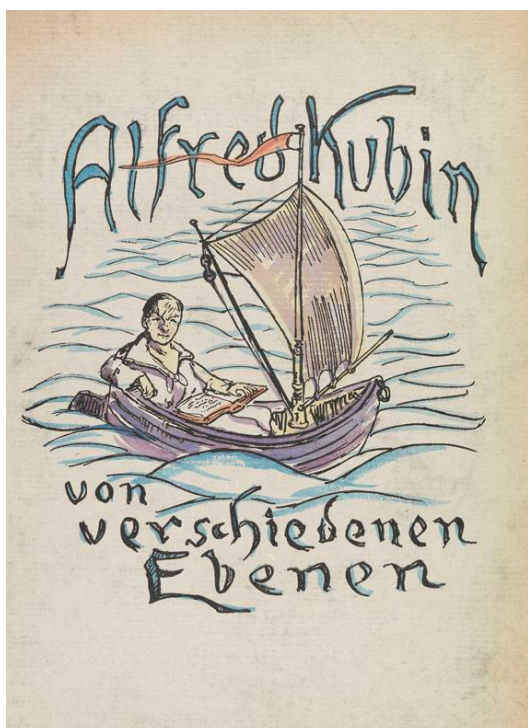 Alfred Kubin
von
verschiedenen
Ebenen